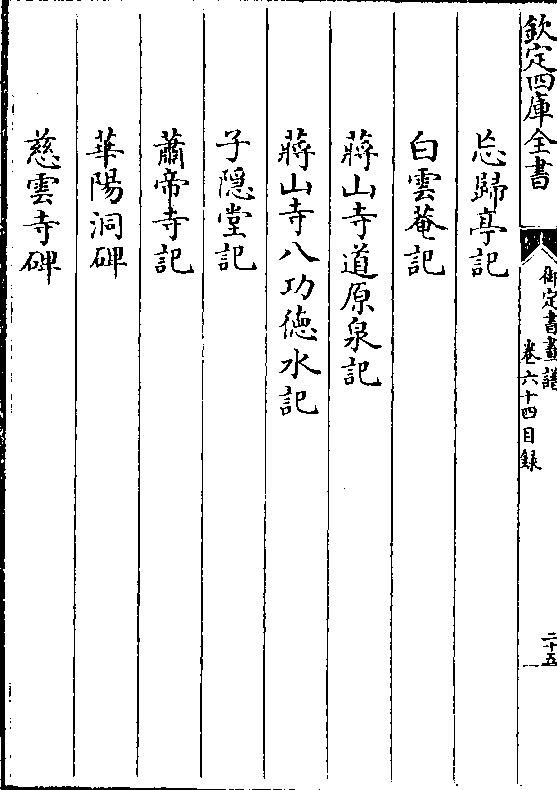 欽定四庫全書
御定書畫譜
卷六十四目錄
二十五
忘歸亭記
白雲菴記
蔣山寺道原泉記
蔣山寺八功德水記
子隱堂記
蕭帝寺記
華陽洞碑
慈雲寺碑